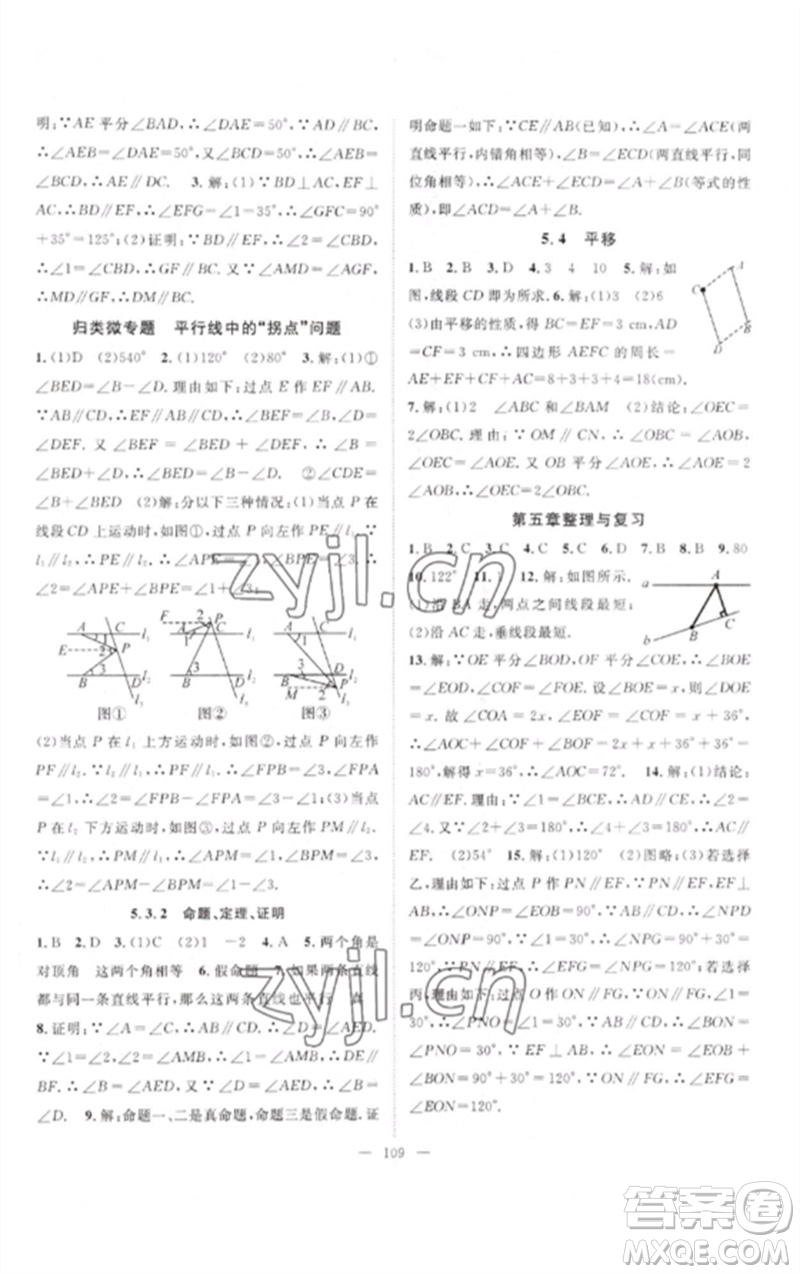 明:∵AE 平分∠BAD,∴∠DAE=50°,∵AD∥BC,
∴∠AEB=∠DAE=50°,又∠BCD=50°,∴∠AEB=
∠BCD,∴AE∥DC. 3.解:(1)∵BD⊥AC,EF⊥
AC,∴BD∥EF,∴∠EFG=∠1=35°,∴∠GFC=90°
+35°=125°;(2)证明:∵BD∥EF,∴∠2=∠CBD,
∴∠1=∠CBD,∴GF∥BC. 又∵∠AMD=∠AGF,
∴MD∥GF,∴MD∥BC.
归类微专题 平行线中的“拐点”问题
1.(1)D (2)540° 2.(1)120° (2)80° 3.解:(1)①
∠BED=∠B+∠D. 理由如下:过点 E 作 EF∥AB.
∵AB∥CD,∴EF∥AB∥CD,∴∠B=∠BEF,∠D=
∠DEF. 又∠BEF + ∠DEF = ∠BED,∴∠BED =
∠B+∠D,即∠BED=∠B+∠D. ②∠CDE=
∠B+∠BED (2)解:分以下三种情况:(1)当点 P 在
线段 CD 上运动时,如图①,过点 P 向左作 PE∥l₁,∵
l₁∥l₂,∴PE∥l₁∥l₂,∴∠APE=∠1,∠BPE=∠3,∴
∠2=∠APE+∠BPE=∠1+∠3;
A C l₁ E 2 P 1 3 B D l₂ l₃
F 2 P A C l₁ 1 3 B D l₂ l₃
A C l₁ 1 3 B D l₂ M 2 P l₃
图① 图② 图③
(2)当点 P 在 l₁ 上方运动时,如图②,过点 P 向左作
PF∥l₁,∵l₁∥l₂,∴PF∥l₂,∴∠FPB=∠3,∠FPA
=∠1,∴∠2=∠FPB-∠FPA=∠3-∠1;(3)当点
P 在 l₂ 下方运动时,如图③,过点 P 向左作 PM∥l₂,
∵l₁∥l₂,∴PM∥l₁,∴∠APM=∠1,∠BPM=∠3,
∴∠2=∠APM-∠BPM=∠1-∠3.
5.3.2 命题、定理、证明
1.B 2.D 3.(1)C (2)1 -2 4.A 5.两个角是
对顶角 这两个角相等 6.假命题 7.如果两条直线
都与同一条直线平行,那么这两条直线也平行 真
8.证明:∵∠A=∠C,∴AB∥CD,∴∠B=∠D. 又
∵∠1=∠2,∠2=∠AMB,∴∠1=∠AMB,∴AE∥
BM,∴∠AED=∠B,又∵∠D=∠AED,∴∠B=
∠D. 9.解:命题一、二是真命题,命题三是假命题. 证
明命题一如下:∵CE∥AB(已知),∴∠A=∠ACE(两
直线平行,内错角相等),∠B=∠ECD(两直线平行,同
位角相等),∴∠ACE+∠ECD=∠A+∠B(等式的性
质),即∠ACD=∠A+∠B.
5.4 平移
1.B 2.B 3.D 4.3 4 10 5.解:如
图,线段 CD 即为所求. 6.解:(1)2 (2)6
(3)由平移的性质,得 BC=EF=8 cm,
AD=CF=3 cm,∴四边形 AEFC 的周长=
AE+EF+CF+AC=8+3+3+4=18(cm).
A C B D
7.解:(1)2 ∠ABC 和∠BAM (2)结论:∠OEC=
2∠OBC. 理由:∵OM∥CN,∴∠OBC=∠AOB,
∠OEC=∠AOE. 又 OB 平分∠AOE,∴∠AOE=
2∠AOB,∴∠OEC=2∠OBC.
第五章整理与复习
1.B 2.C 3.C 4.C 5.C 6.D 7.B 8.B 9.80
10.122° 11.1 12.解:如图所示.
(1)沿 BA 走,两点之间线段最短;
(2)沿 AC 走,垂线段最短.
a A C B b
13.解:∵OE 平分∠BOD,OF 平分∠COE,∴∠BOE
=∠DOE,∠COF=∠EOF. 设∠BOE=x,则∠DOE
=x. 故∠COA=2x,∠EOF=∠COF=x+36°,
∴∠AOC+∠COF+∠BOF=2x+x+36°+36°=
180°,解得x=36°,∴∠AOC=72°. 14.解:(1)结论:
AC∥EF. 理由:∵∠1=∠BCE,∴AD∥CE,∴∠2=
∠4. 又∵∠2+∠3=180°,∴∠4+∠3=180°,∴AC∥
EF. (2)54° 15.解:(1)60° (2)图略;(3)若选择
乙,理由如下:过点 P 作 PN∥EF,∵PN∥EF,EF⊥
AB,∴∠ONP=∠EOB=90°,∵EF⊥AB,∴
∠ONP=∠BOF=90°,∴∠NPG=90°+30°=120°,
∵PN∥EF,∴∠EFG=∠NPG=120°. 若选择丙,理
由如下:过点 O 作 ON∥FG,∵ON∥FG,∠1=30°,
∴∠PNO=30°,∵AB∥CD,∴∠BON=
∠PNO=30°,∵EF⊥AB,∴∠EOB=90°,∴∠EON=
∠EOB+∠BON=90°+30°=120°,∵ON∥FG,∴
∠EFG=∠EON=120°.
— 109 —
zyjl.cn
zyjl.cn
答案卷
MXQE.COM